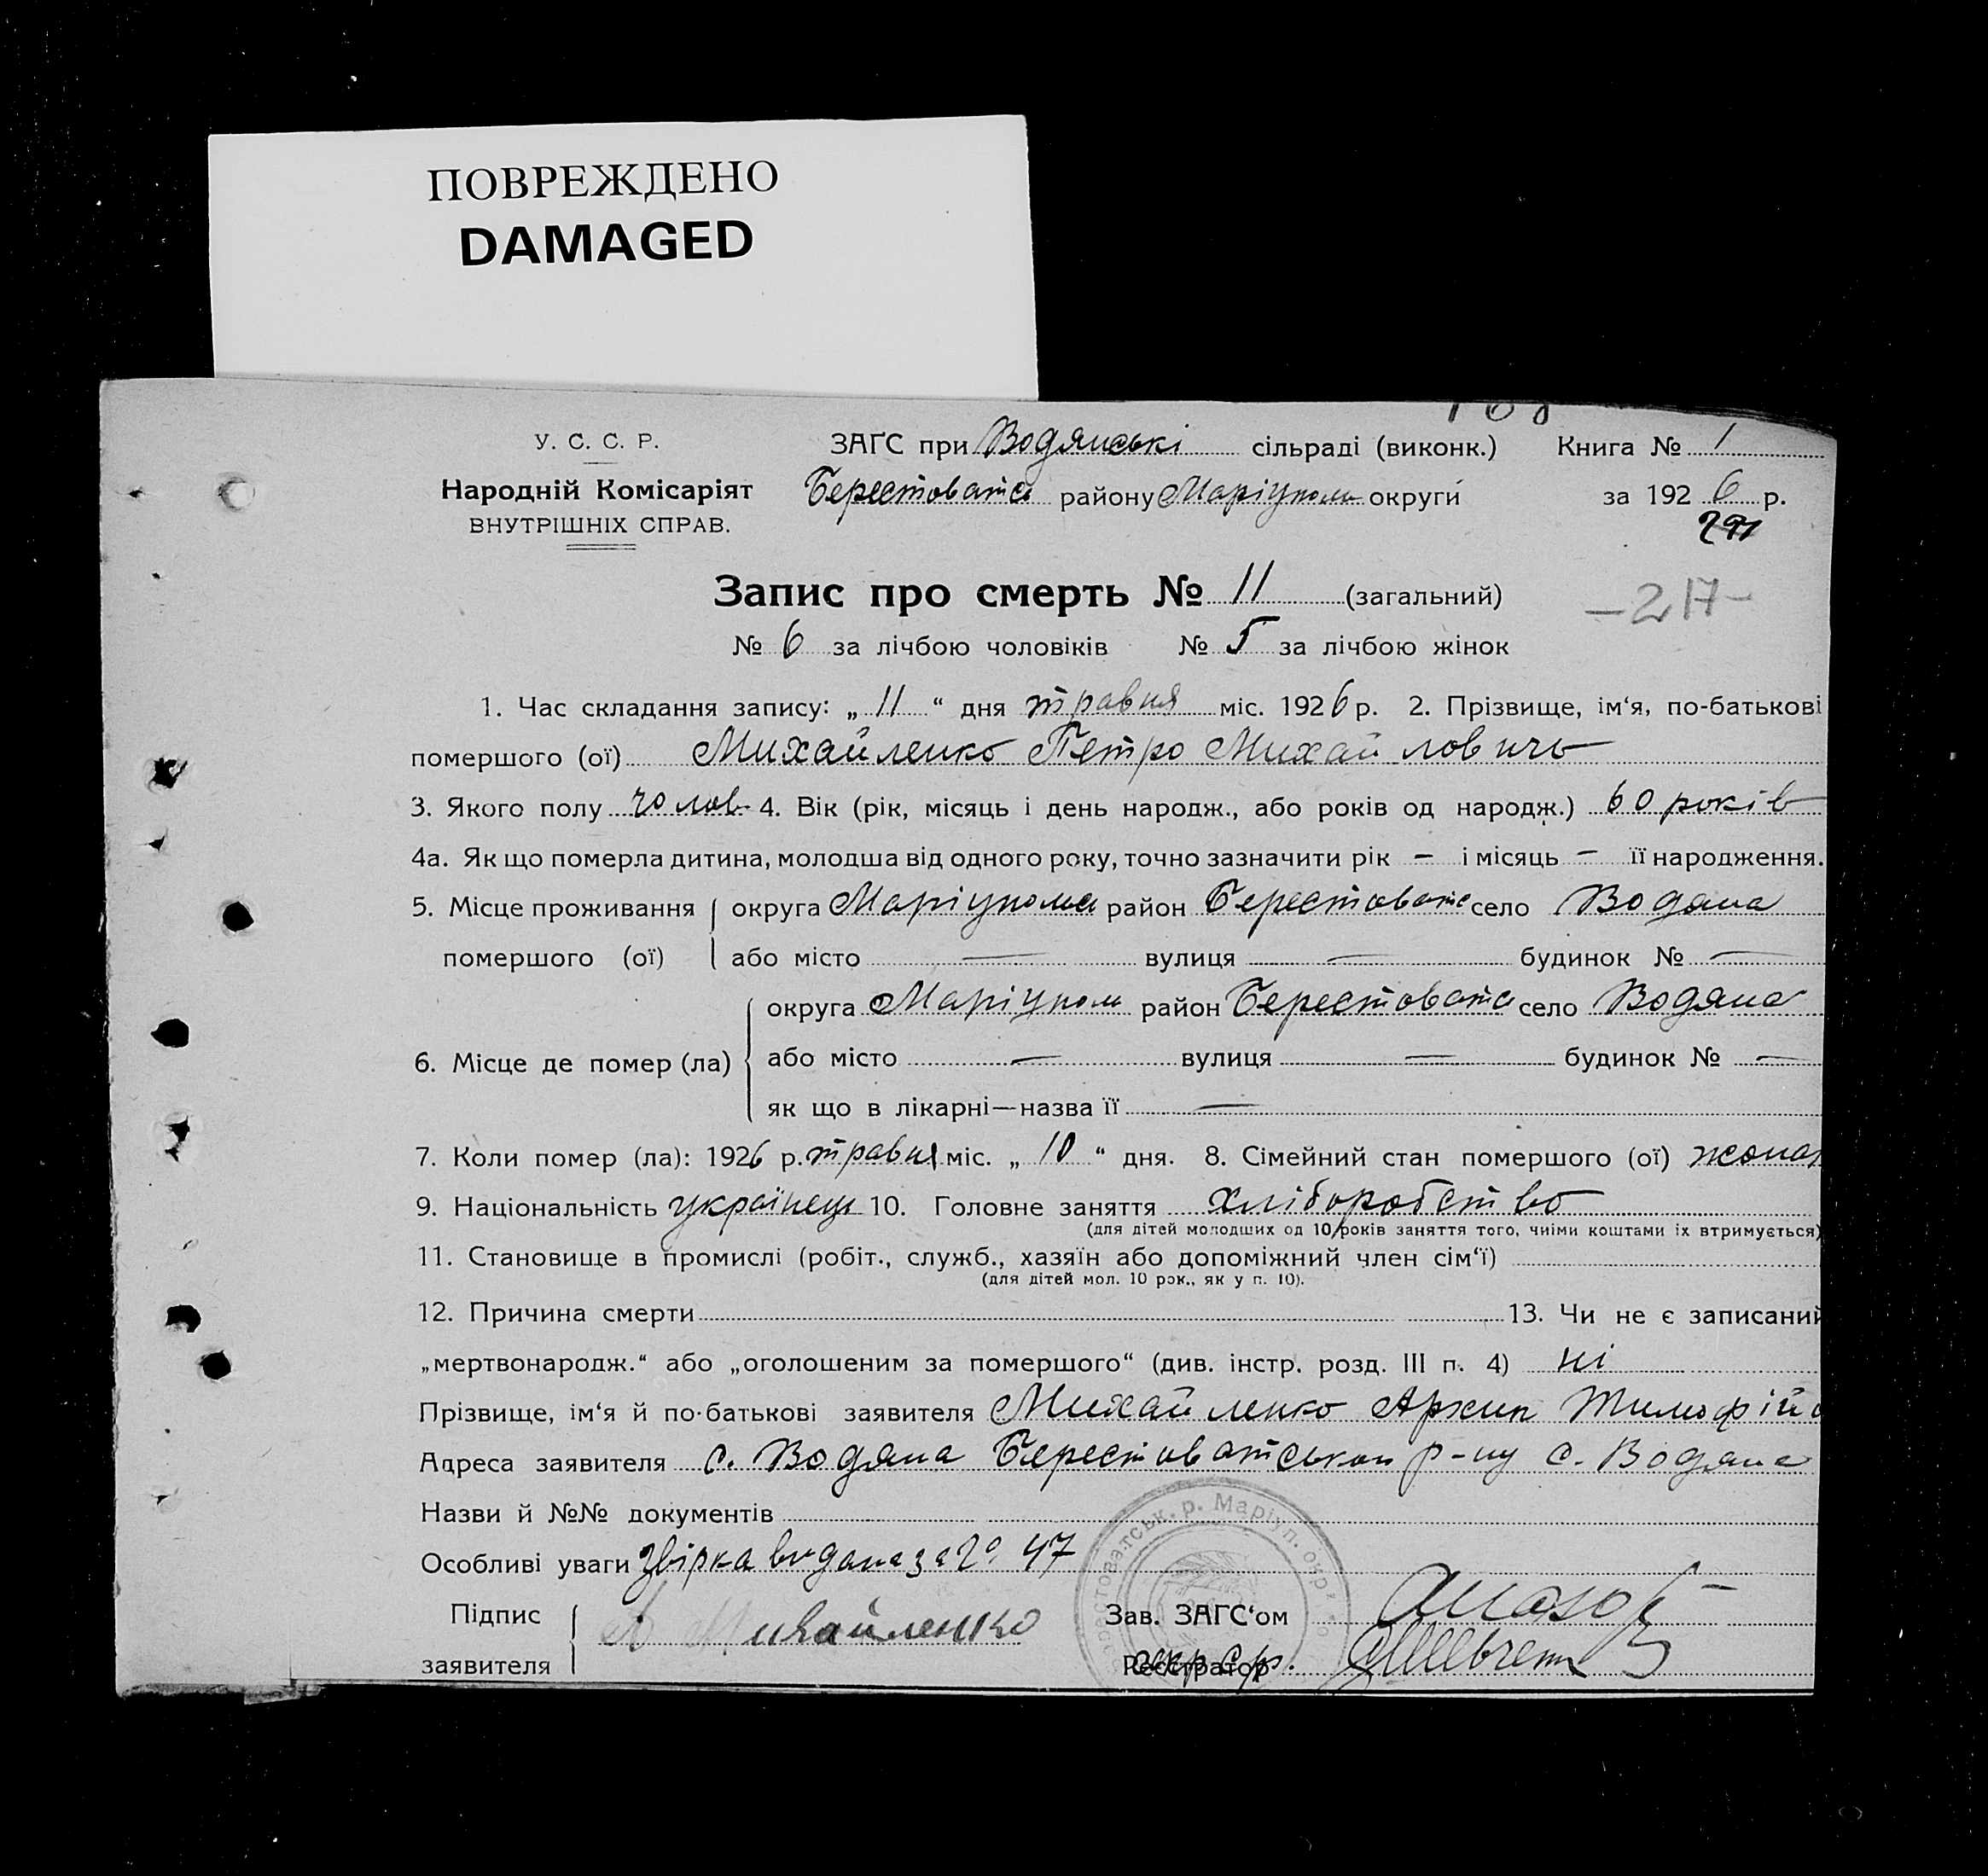 ПОВРЕЖДЕНО
DAMAGED
У. С. С. Р.
ЗАҐС при Водянські сільраді (виконк.) Книга № 1
Народній Комісаріят
Берестоватсь району Маріуполь округи за 1926 р.
ВНУТРІШНІХ СПРАВ.
Запис про смерть № 11 (загальний)
-217-
№ 6 за лічбою чоловіків № 5 за лічбою жінок
1. Час складання запису: „ 11 “ дня травня міс. 1926 р. 2. Прізвище, ім‘я, по-батькові
помершого (ої) Михайленко Петро Михайловичь
3. Якого полу чолов 4. Вік (рік, місяць і день народж., або років од народж.) 60 років
4а. Як що померла дитина, молодша від одного року, точно зазначити рік – і місяць – її народження.
5. Місце проживання округа район село Водяна
помершого (ої) або місто — вулиця — будинок № —
округа Маріупол район Берестоватс село Водяна
6. Місце де помер (ла) або місто — вулиця — будинок № —
як що в лікарні—назва її —
7. Коли помер (ла): 1926 р. травня міс. „ 10 “ дня. 8. Сімейний стан помершого (ої) жонат
9. Національність українець 10. Головне заняття хліборобство
(для дітей молодших од 10 років заняття того, чиїми коштами їх втримується)
11. Становище в промислі (робіт., служб., хазяїн або допоміжний член сім‘ї)
(для дітей мол. 10 рок., як у п. 10).
12. Причина смерти 13. Чи не є записаний
„мертвонародж.“ або „оголошеним за помершого“ (див. інстр. розд. III п. 4) ні
Прізвище, ім‘я й по-батькові заявителя Михайленко Архип Тимофій
Адреса заявителя с. Водяна Берестоватської р-ну с. Водяна
Назви й №№ документів
Особливі уваги видана за № 47
Підпис
заявителя А Михайленко
Зав. ЗАҐС‘ом
Реєстратор